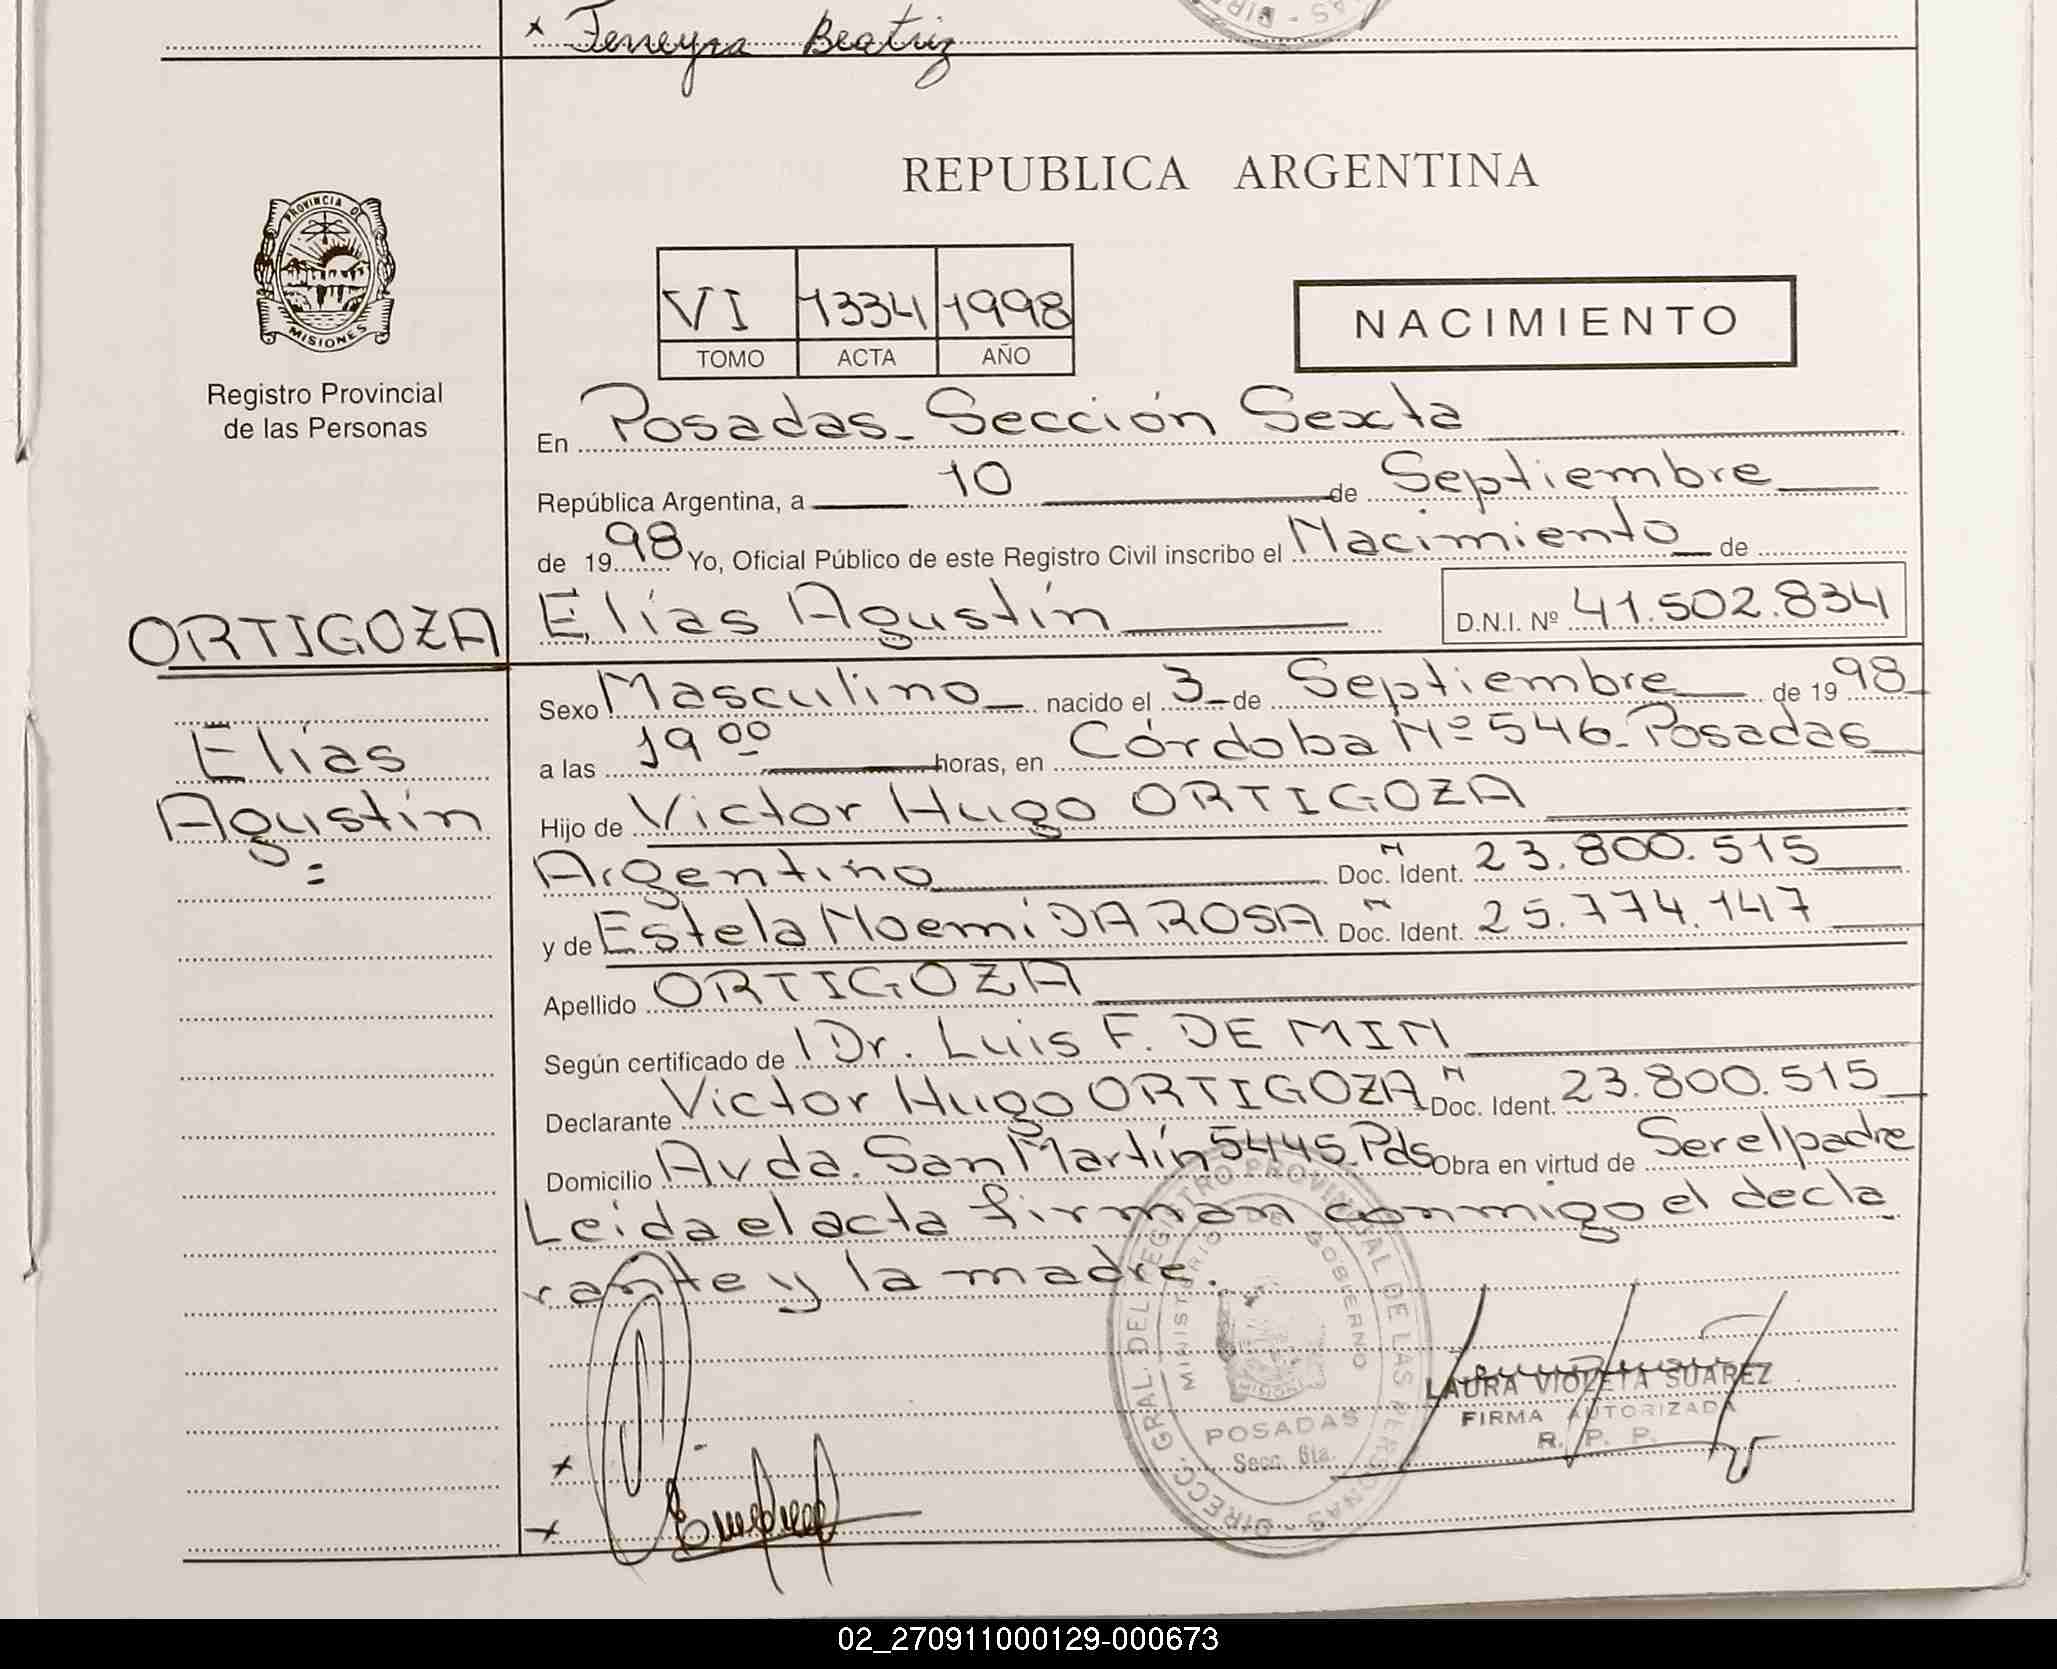 * Ferreyra Beatriz
REPUBLICA ARGENTINA
PROVINCIA DE
MISIONES
Registro Provincial
de las Personas
VI 1334 1998
TOMO ACTA AÑO
NACIMIENTO
En Posadas - Sección Sexta
República Argentina, a 10 de Septiembre
de 1998 Yo, Oficial Público de este Registro Civil inscribo el Nacimiento de
ORTIGOZA
Elías Agustín
D.N.I. Nº 41.502.834
Elías
Agustín
Sexo Masculino nacido el 3 de Septiembre de 1998
a las 19 00 horas, en Córdoba Nº 546 - Posadas
Hijo de Victor Hugo ORTIGOZA
Argentino N Doc. Ident. 23.800.515
y de Estela Noemi DA ROSA N Doc. Ident. 25.774.147
Apellido ORTIGOZA
Según certificado de l Dr. Luis F. DE MIN
Declarante Victor Hugo ORTIGOZA N Doc. Ident. 23.800.515
Domicilio Avda. San Martín 5445 - Pds Obra en virtud de Ser el padre
Leida el acta firman conmigo el decla
rante y la madre.
DIRECC. GRAL. DEL REGISTRO PROVINCIAL DE LAS PERSONAS
MINISTERIO DE GOBIERNO
MISIONES
POSADAS
Secc. 6ta.
LAURA VIOLETA SUAREZ
FIRMA AUTORIZADA
R. P. P.
02_270911000129-000673